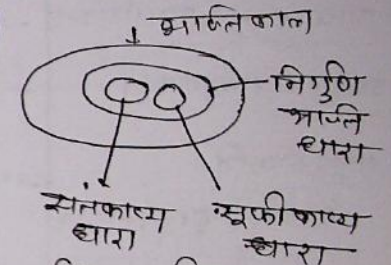 भक्तिकाल
निर्गुण
भक्ति
धारा
संतकाव्य
धारा
सूफी काव्य
धारा